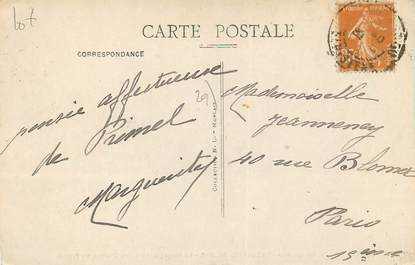 lot
CARTE POSTALE
CORRESPONDANCE
pensée affectueuse
de Primel
Marguerite
29
Mademoiselle
Jeanneney
40 rue Blomet
Paris
15ème